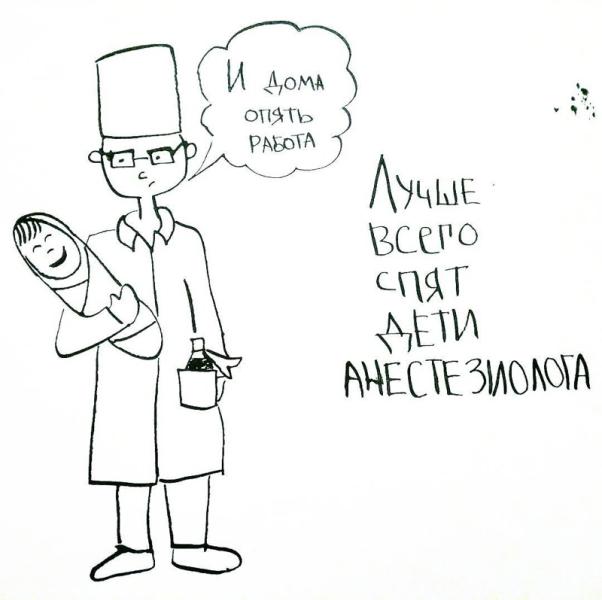 И ДОМА
ОПЯТЬ
РАБОТА
ЛУЧШЕ
ВСЕГО
СПЯТ
ДЕТИ
АНЕСТЕЗИОЛОГА